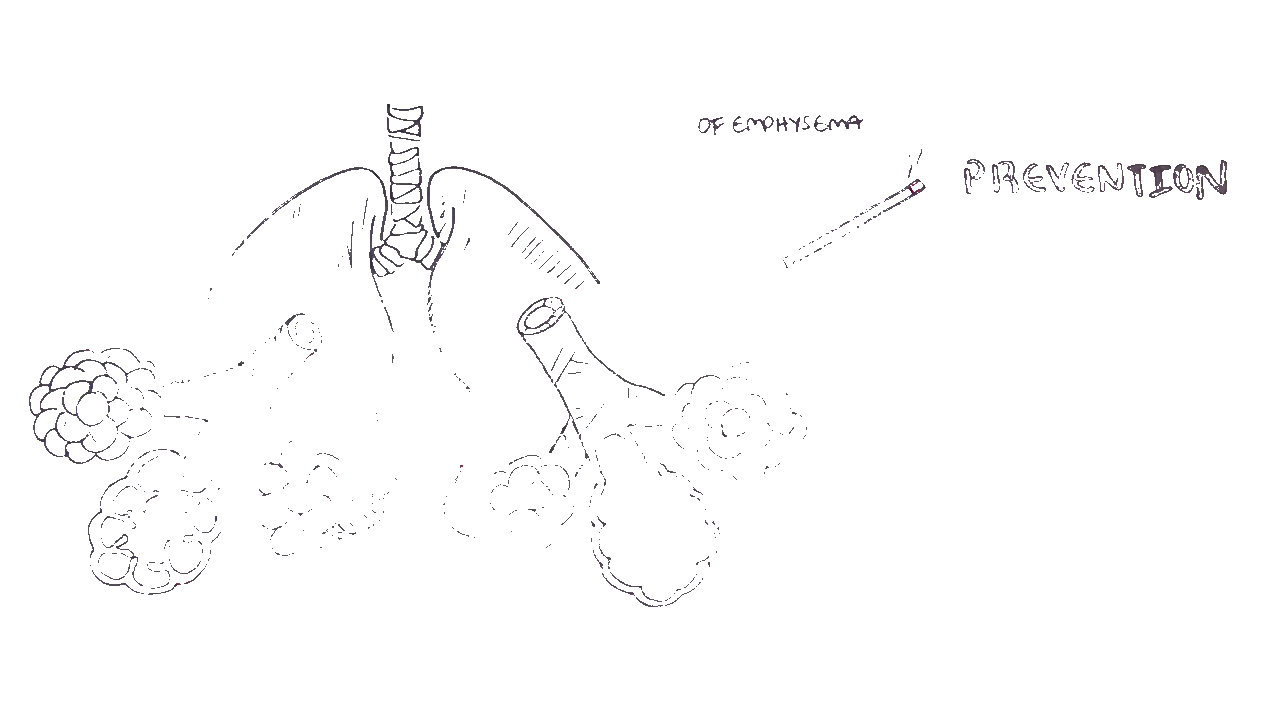 OF EMPHYSEMA
PREVENTION